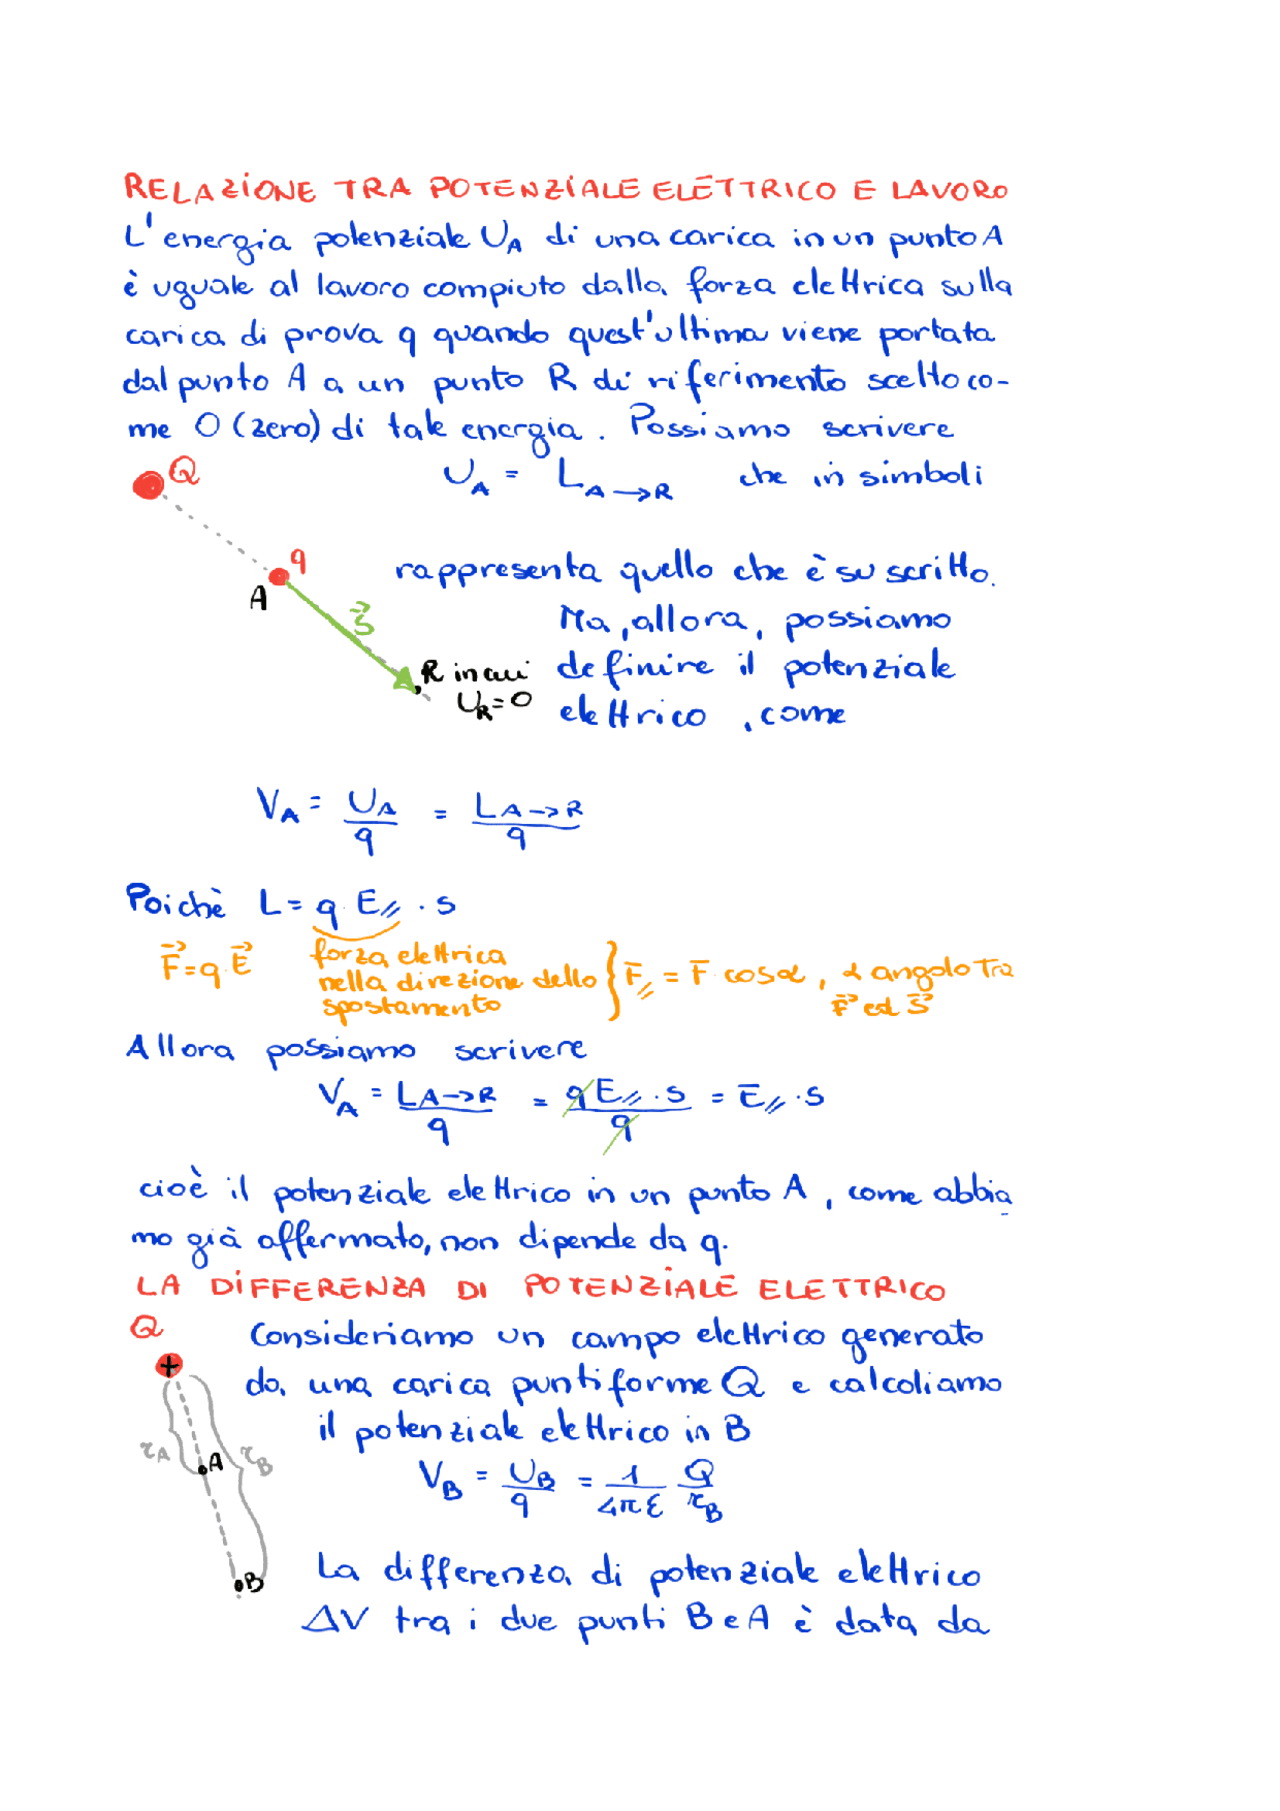 RELAZIONE TRA POTENZIALE ELETTRICO E LAVORO
L'energia potenziale U_A di una carica in un punto A
è uguale al lavoro compiuto dalla forza elettrica sulla
carica di prova q quando quest'ultima viene portata
dal punto A a un punto R di riferimento scelto co-
me 0 (zero) di tale energia. Possiamo scrivere
Q
U_A = L_A→R che in simboli
q
A
s⃗
R in cui
U_R=0
rappresenta quello che è su scritto.
Ma, allora, possiamo
definire il potenziale
elettrico, come
V_A = U_A/q = L_A→R/q
Poichè L= q E_// · s
F⃗=q E⃗
forza elettrica
nella direzione dello
spostamento
} F_// = F cosα, α angolo tra
F⃗ ed s⃗
Allora possiamo scrivere
V_A = L_A→R/q = q E_// · s/q = E_// · s
cioè il potenziale elettrico in un punto A, come abbia
mo già affermato, non dipende da q.
LA DIFFERENZA DI POTENZIALE ELETTRICO
Q
+
r_A
A
r_B
B
Consideriamo un campo elettrico generato
da una carica puntiforme Q e calcoliamo
il potenziale elettrico in B
V_B = U_B/q = 1/4πε Q/r_B
La differenza di potenziale elettrico
ΔV tra i due punti B e A è data da